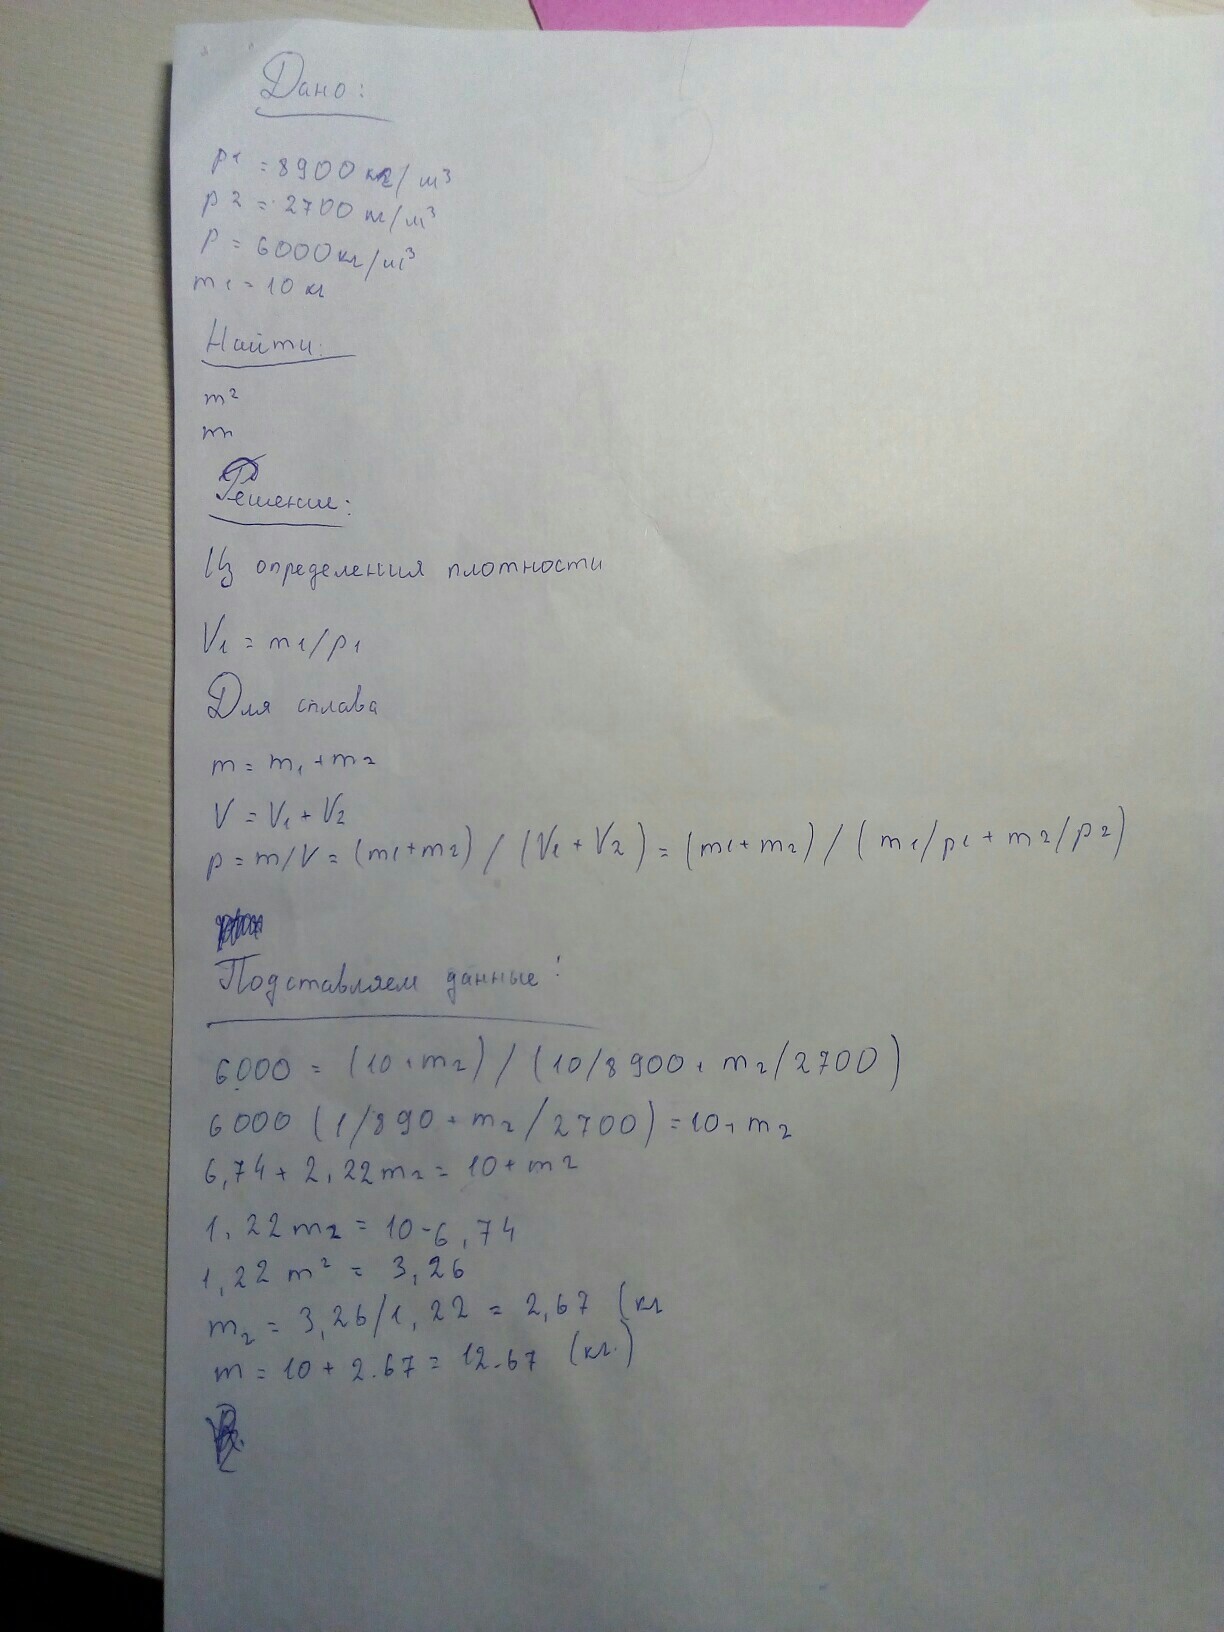 Дано:
p1 = 8900 кг/м³
p2 = 2700 кг/м³
p = 6000 кг/м³
m1 = 10 кг
Найти:
m2
m
Решение:
Из определения плотности
V1 = m1/p1
Для сплава
m = m1 + m2
V = V1 + V2
p = m/V = (m1+m2) / (V1 + V2) = (m1+m2) / (m1/p1 + m2/p2)
Подставляем данные:
6000 = (10+m2) / (10/8900 + m2/2700)
6000 (1/890 + m2/2700) = 10+m2
6,74 + 2,22m2 = 10 + m2
1,22 m2 = 10-6,74
1,22 m² = 3,26
m2 = 3,26/1,22 = 2,67 (кг
m = 10 + 2.67 = 12.67 (кг.)